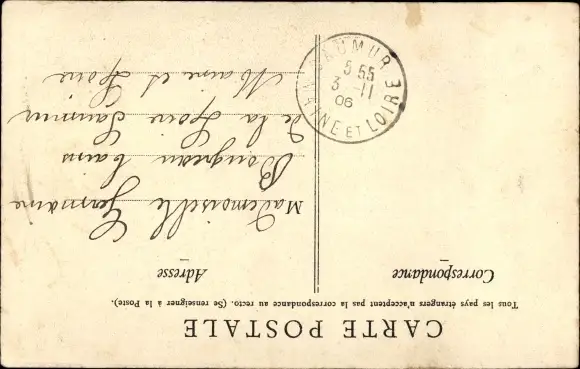 CARTE POSTALE
Tous les pays étrangers n'acceptent pas la correspondance au recto. (Se renseigner à la Poste).
Correspondance
Adresse
Mademoiselle Germaine
Bougreau bains
de la Loire Saumur
Maine et Loire
SAUMUR
5 55
3 -11
06
MAINE ET LOIRE